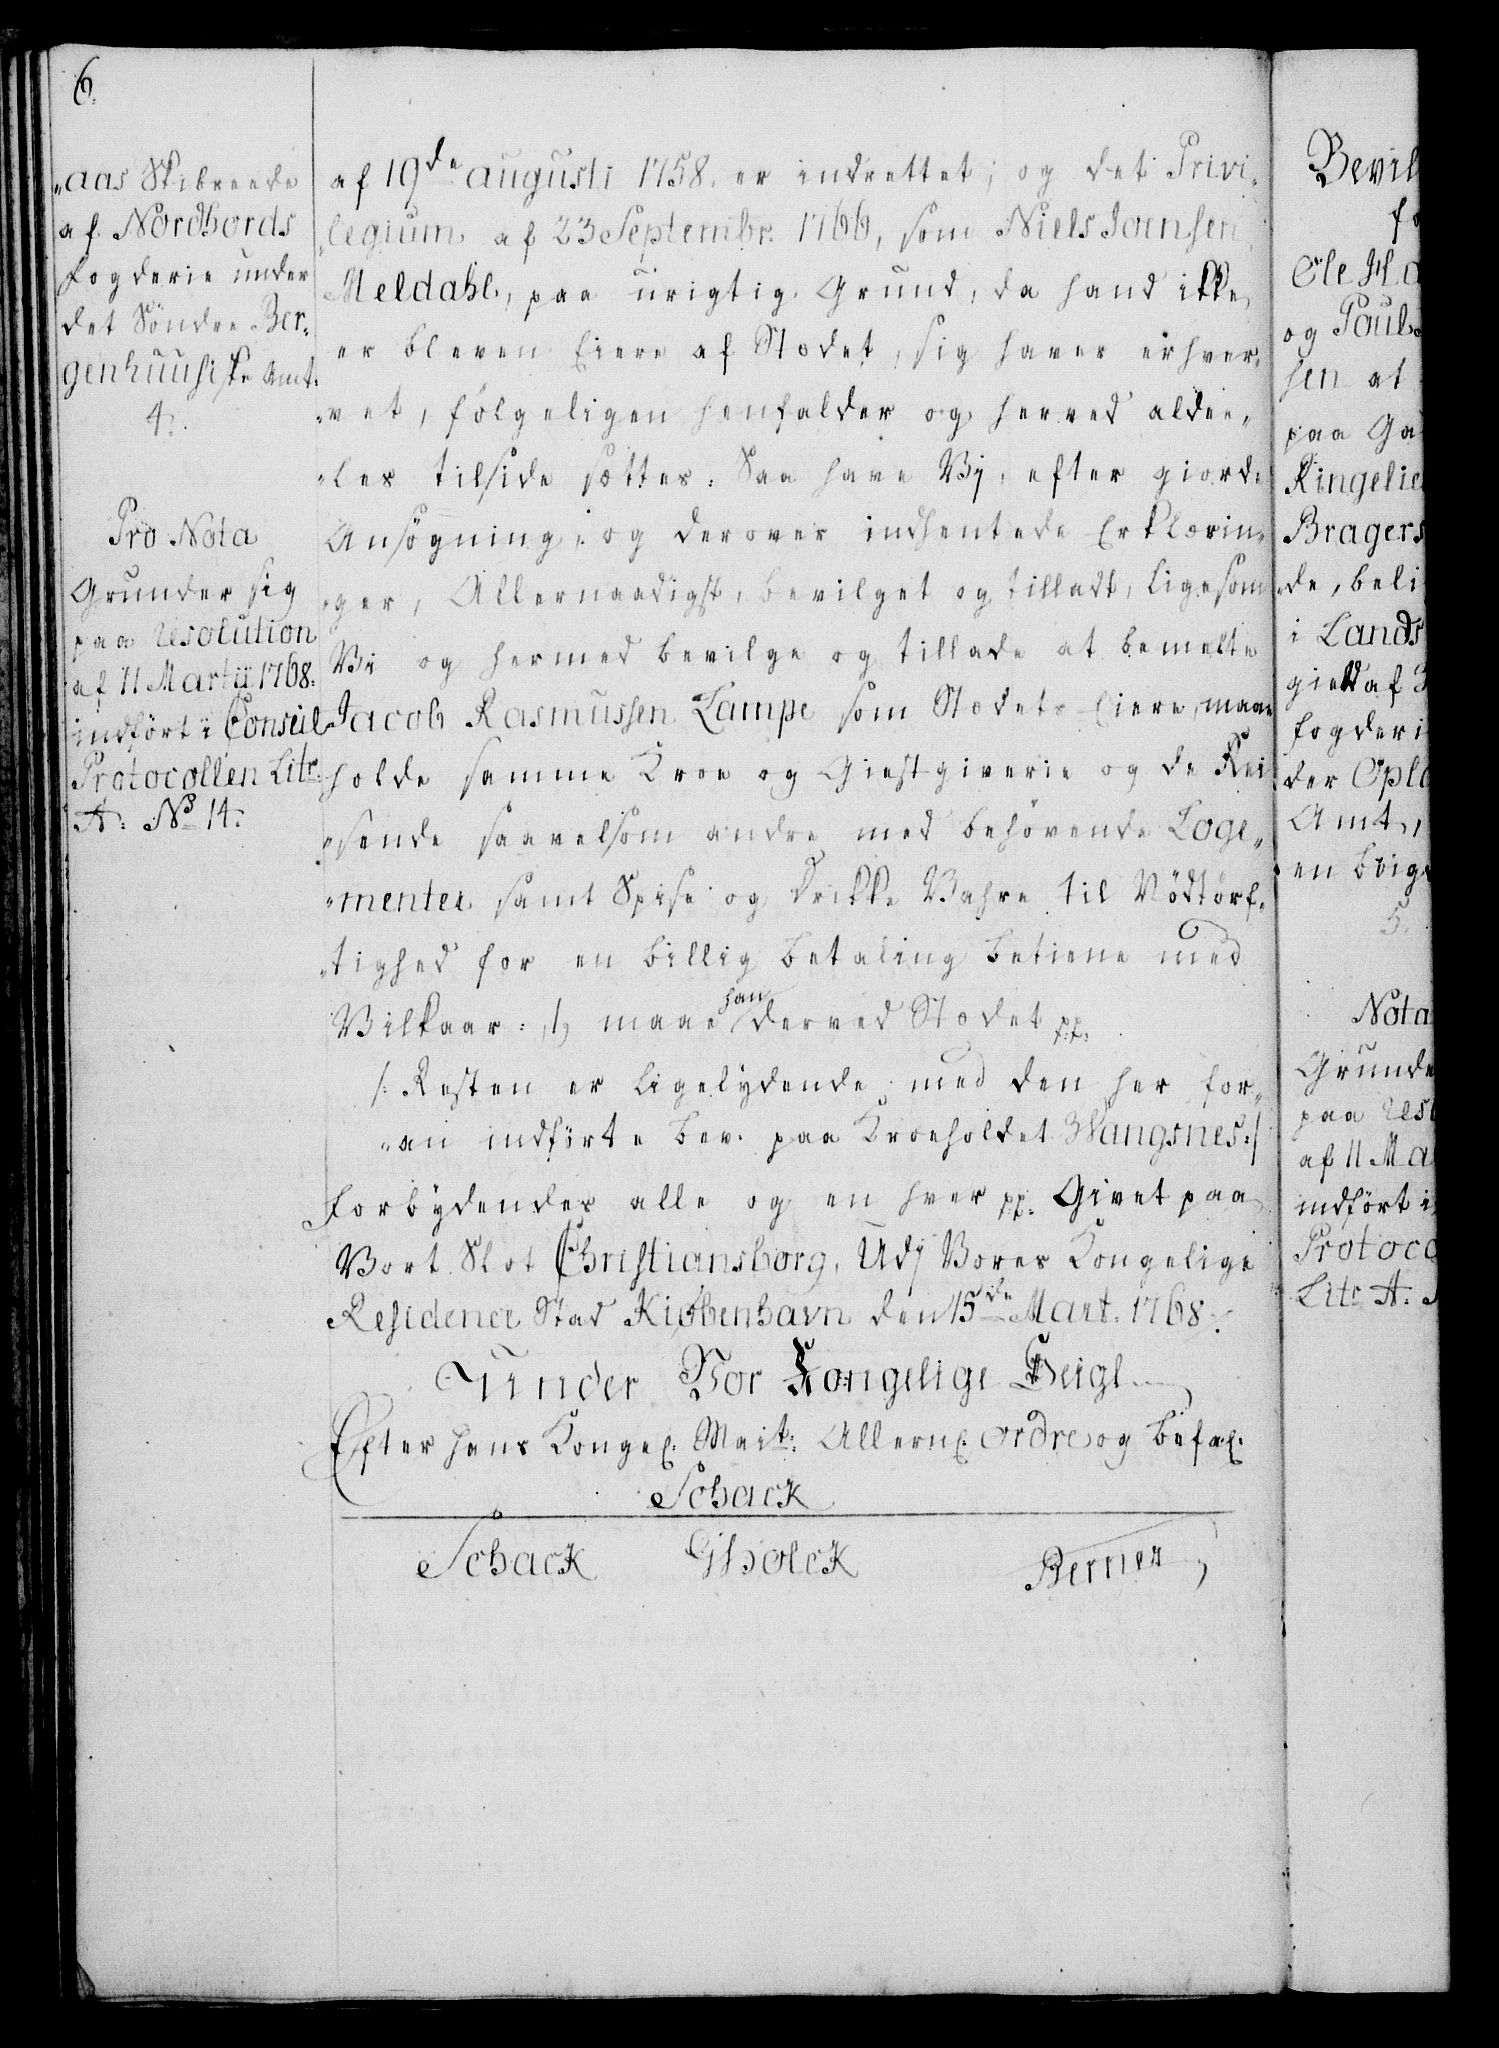 6.
„aas Skibreede
af Nordhords
fogderie under
det Söndre Ber„
genhuusiske Amt.
4.
Pro Nota
Grunder sig
paa Resolution
af 11 Martii 1768.
indfört i Consul
Protocollen Litr.
A: No 14.
af 19de augusti 1758. er indrettet; og det Privi„
„legium af 23 Septembr. 1766, som Niels Jansen
Meldahl, paa urigtig Grund, da hand ikke
er bleven Eiere af Stædet, sig haver erhver„
„vet, fölgeligen henfalder og herved aldee„
„les tilside sættes: Saa have Vy, efter giorde
Ansögning, og derover indhentede Erklærin„
„ger, Allernaadigst, bevilget og tilladt, ligesom
Vi og hermed bevilge og tillade at bemelte
Jacob Rasmussen Lampe som Stædets Eiere, maae
holde samme Kroe og Giestgiverie og de Rei
„sende saavelsom andre med behövende Loge„
„menter samt Spise og Drikke Vahre til Nödtörf„
„tighed for en billig betaling betiene med
Vilkaar: 1, maae han derved Stædet pp.
/: Resten er ligelydende med den her for„
„an indförte bev. paa Kroeholdet Wangsnes :/
forbydendes alle og en hver pp. Givet paa
Vort Slot Christiansborg, Udj Vores Kongelige
Residence Stad Kiøbenhavn den 15de Mart. 1768.
Under Vor Kongelige Seigl
Efter hans Kongel. Mait: Allern. ordre og befal.
Schack
Schack GHolck Berner
Bevil
fo
Ole Ha
og Paul
sen at
paa Ga
Ringelie
Bragers
„de, beli
i Lands
gield af
fogderi
der Opla
Amt,
en böig
5.
Nota
Grunde
paa Res
af 11 Ma
indfört i
Protoco
Litr A.